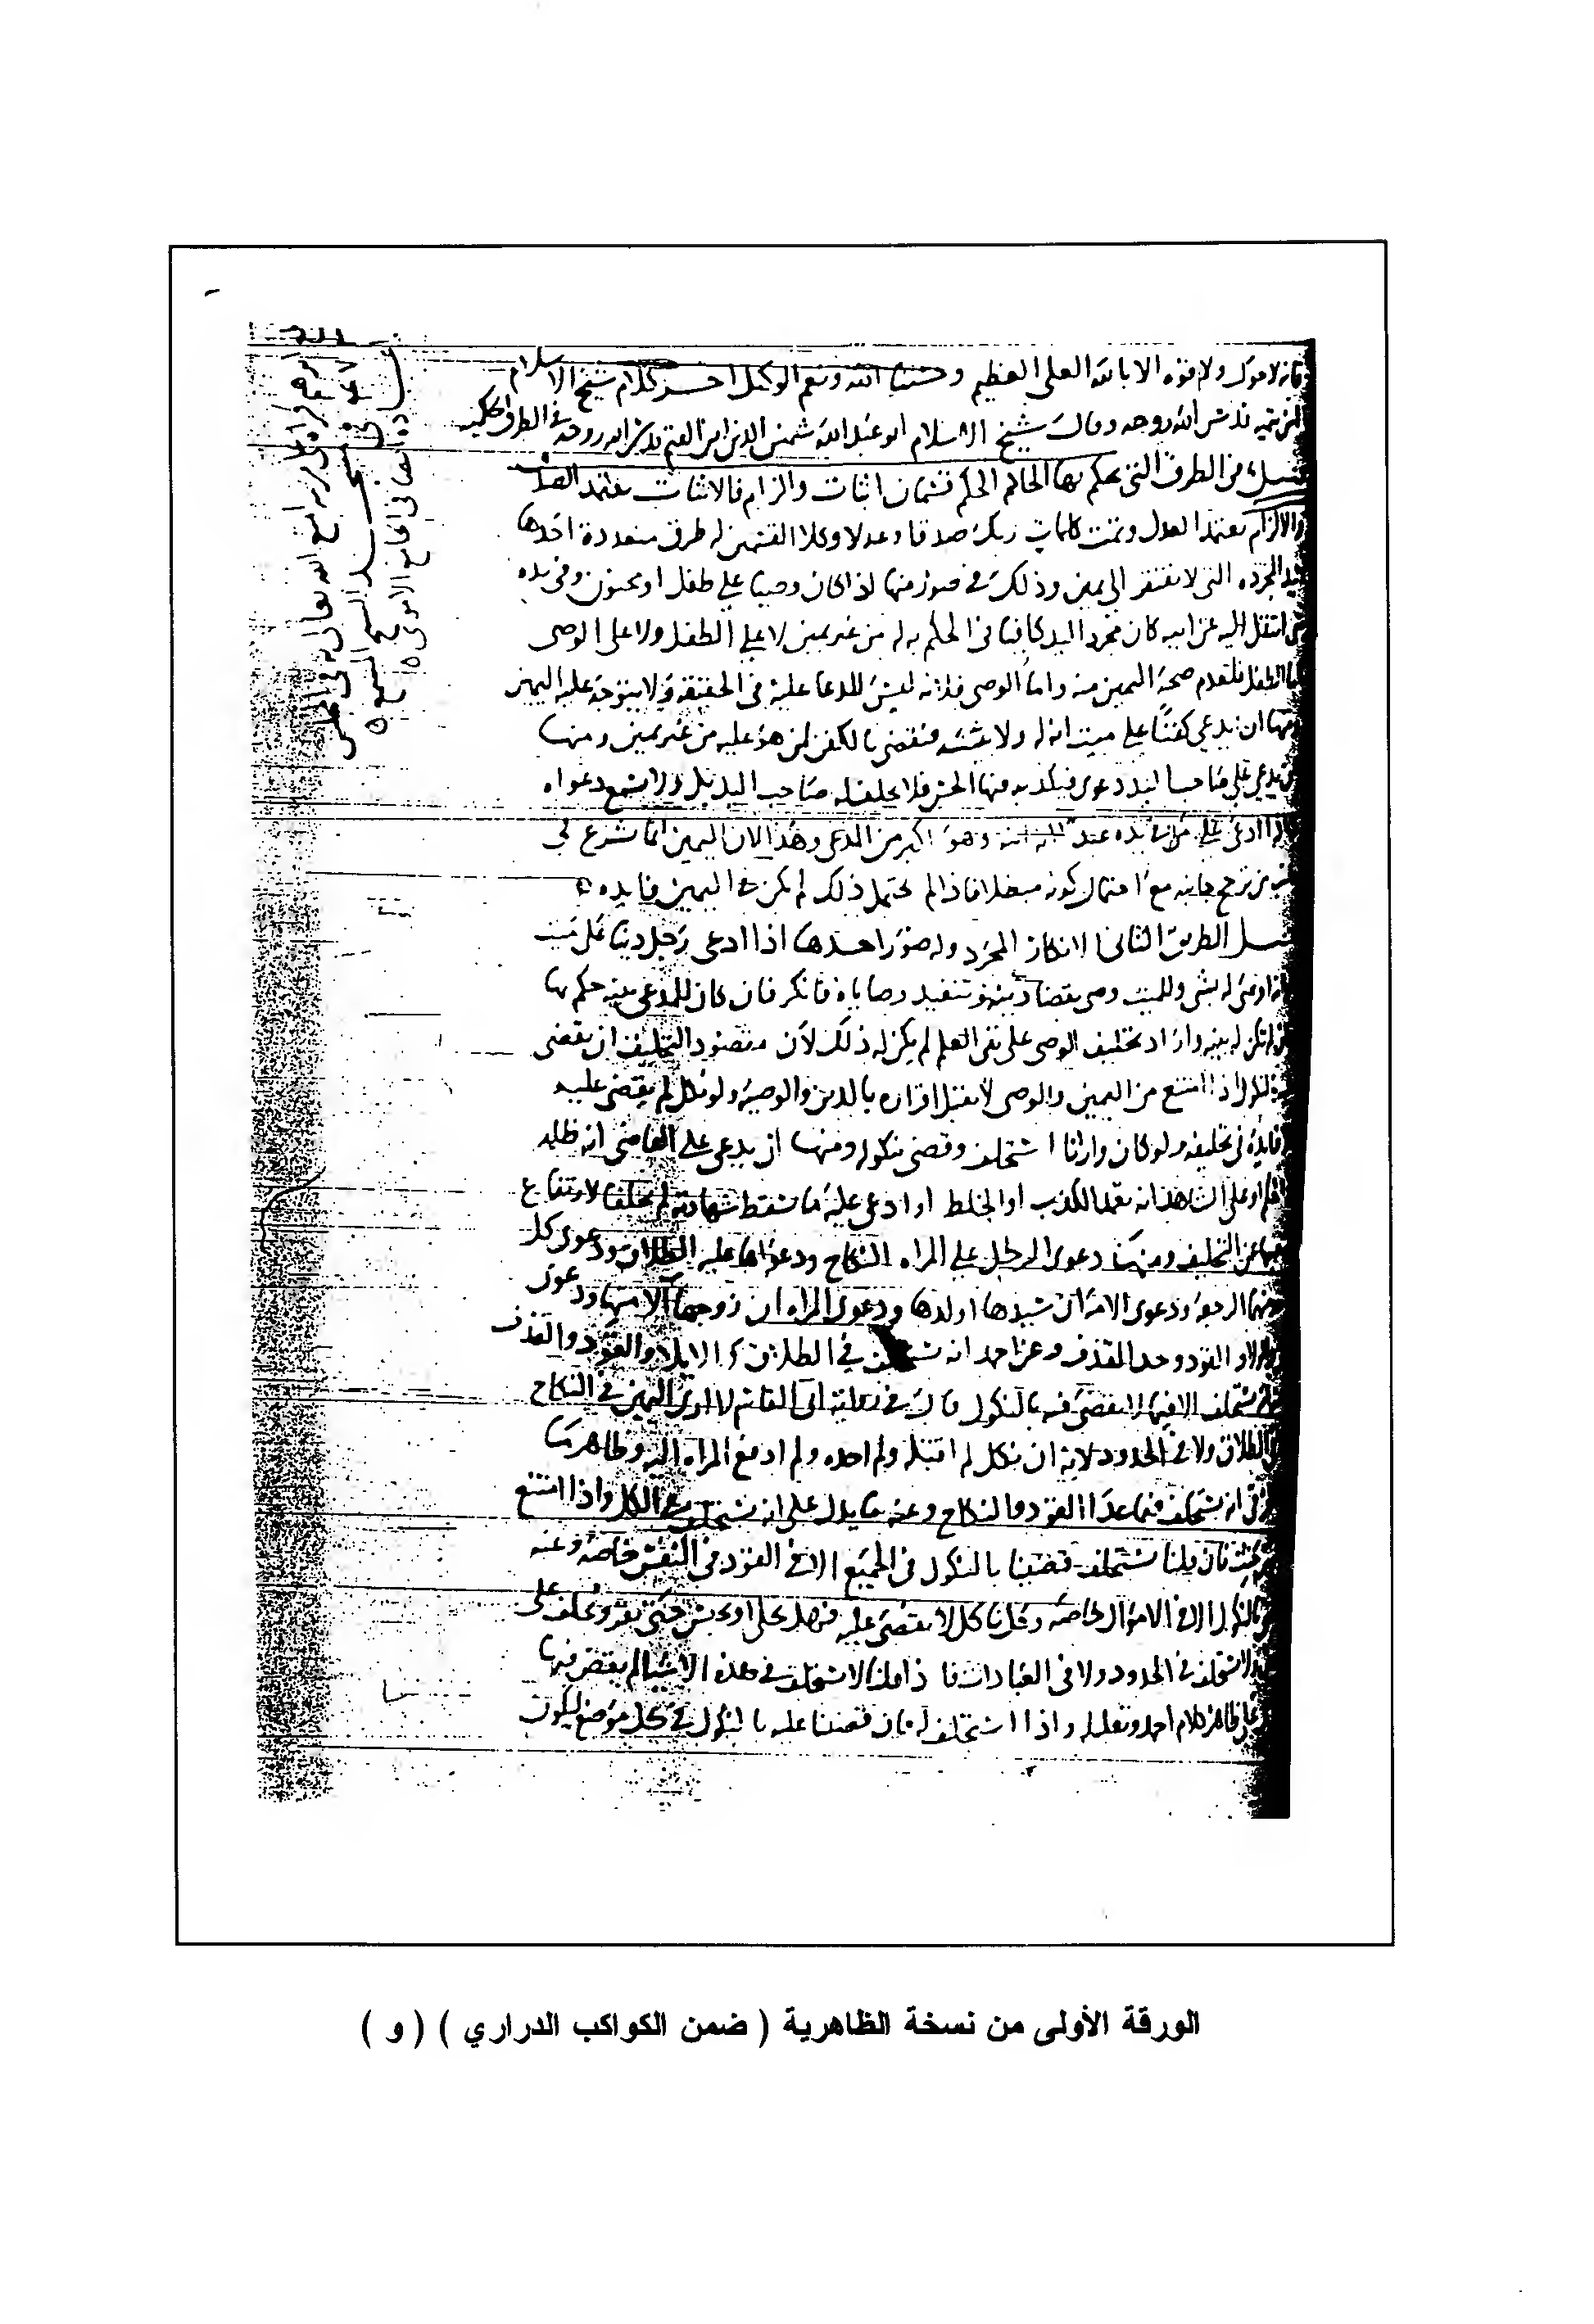 فانه لا حول ولا قوه الا بالله العلى العظيم وحسبنا الله ونعم الوكيل اخر كلام شيخ الاسلام
ابن تيميه قدس الله روحه وقال شيخ الاسلام ابو عبد الله شمس الدين ابن القيم قدس الله روحه في الطرق الحكميه
فصل من الطرق التي يحكم بها الحاكم الحكم قسمان اثبات والزام فالاثبات يعتمد الصدق
والالزام يعتمد العدل وتمت كلمات ربك صدقا وعدلا وكلا القسمين له طرق متعددة احدها
اليد المجرده التي لا تفتقر الى يمين وذلك في صور منها اذا كان وصيا على طفل او مجنون وفي يده
شي انتقل اليه عن ابيه كان مجرد اليد كافيا في الحكم به له من غير يمين لا على الطفل ولا على الوصى
اما الطفل فلعدم صحة اليمين منه واما الوصى فلانه ليس المدعا عليه في الحقيقة ولا يتوجه عليه اليمين
ومنها ان يدعي كفنا على ميت انه له ولا بينه فنقضى بالكفن لمن هو عليه من غير يمين ومنها
ان يدعي على صاحب اليد دعوى فيكذبه فيها الحس فلا يحلف له صاحب اليد بل ولا تسمع دعواه
ادعى على من في يده عبد انه ابنه وهو اكبر من المدعى وهذا لان اليمين انما تشرع في
ترجح جانبه مع احتمال كونه مبطلا فاذا لم يحتمل ذلك لم يكن في اليمين فايده
فصل الطريق الثاني الانكار المجرد وله صور احدها اذا ادعى رجل دينا على ميت
او اوصى له بشي وللميت وصى بقضا دينه وتنفيذ وصاياه فانكر فان كان للمدعى بينه حكم بها
وان لم تكن له بينه واراد تحليف الوصى على نفى العلم لم يكن له ذلك لان مقصود التحليف ان يقضى
بالنكول اذا امتنع من اليمين والوصى لا يقبل اقراره بالدين والوصيه ولو نكل لم يقض عليه
فلا فايده في تحليفه ولو كان وارثا استحلف وقضى بنكوله ومنها ان يدعى على القاضى انه ظلمه
او على الشاهد انه تعمد الكذب او الخلط او ادعى عليه ما يسقط شهادته لم يحلفا لارتفاع
عن التحليف ومنها دعوى الرجل على المراه النكاح ودعواها عليه الطلاق ودعوى كل
منهما الرجعه ودعوى الامة ان سيدها اولدها ودعوى المراه ان زوجها آلا منها ودعوى
والولاء والقود وحد القذف وعن احمد انه يستحلف في الطلاق والايلا والقود والقذف
يستحلف الا فيما لا يقضى فيه بالنكول قال في رواية ابى القاسم لا ارى اليمين في النكاح
ولا في الطلاق ولا في الحدود لانه ان نكل لم اقتله ولم احده ولم ادفع المراه اليه وظاهر كلام
الخرقي انه يستحلف فيما عدا القود والنكاح وعنه ما يدل على انه يستحلف في الكل واذا امتنع
فان قلنا يستحلف قضينا بالنكول في الجميع الا في القود في النفس خاصة وعنه
بالنكول الا في الاموال خاصة وكل ناكل لا يقضى عليه فهل يخلى او يحبس حتى يقر او يحلف على
ولا يستحلف في الحدود ولا في العبادات فاذا قلنا لا يستحلف في هذه الاشيا لم يقض فيها
على ظاهر كلام احمد وتعليله واذا استحلف له فان قضينا عليه بالنكول في كل موضع ليكون
الورقة الأولى من نسخة الظاهرية ( ضمن الكواكب الدراري ) ( و )